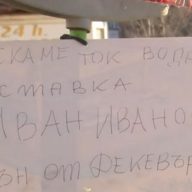 24 h
СКАМЕ ТОК ВОДА
СТАВКА
ИВАН ИВАНО
ЪН ОТ ДЕКЕВР